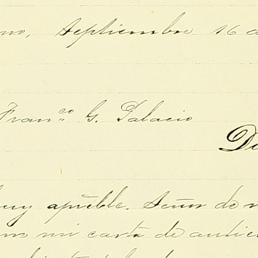 no, Septiembre 16 d
Fran.co G. Palacio
D
uy apréble. Señor de m
mi carta de